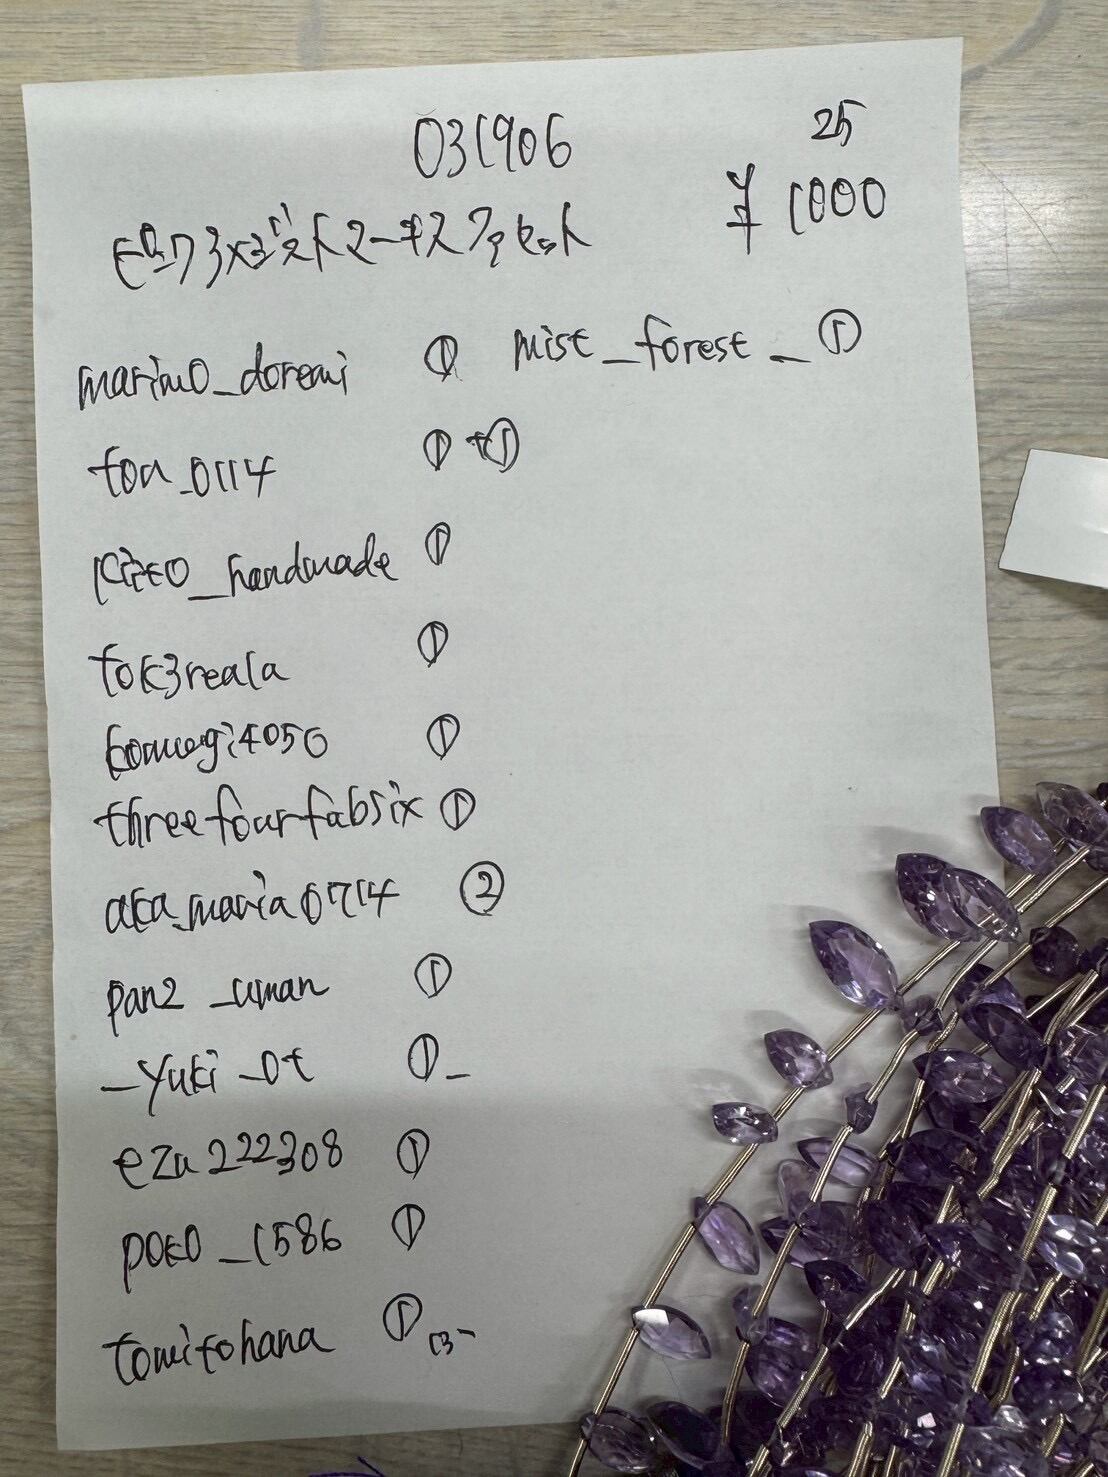 031906
25
¥1000
marimo_doremi ① mist_forest_ ①
toa_0114 ① +①
kiito_handmade ①
tok3reala ①
komugi4050 ①
threefourfabsix ①
aka_maria0714 ②
pan2_uman ①
_yuki_ot ①_
eza222308 ①
poko_1586 ①
tomitohana ① 13